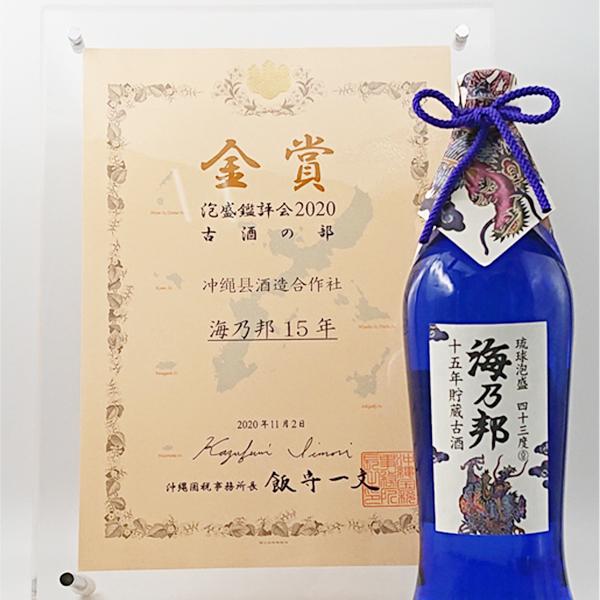 金賞
泡盛鑑評会2020
古酒の部
冲绳县酒造合作社
海乃邦15年
2020年11月2日
Kazufumi Iimori
沖縄国税事務所長 飯守一文
琉球泡盛 四十三度
海乃邦
十五年貯蔵古酒